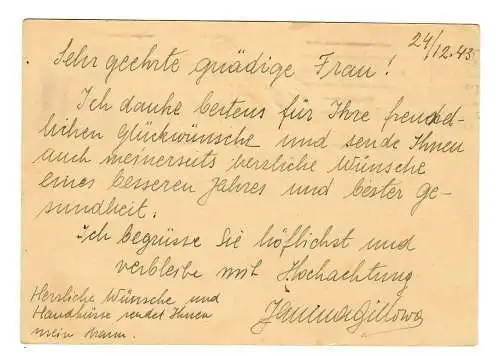 24/12.43
Sehr geehrte gnädige Frau!
Ich danke bestens für Ihre freud-
lichen Glückwünsche und sende Ihnen
auch meinerseits herzliche Wünsche
eines besseren Jahres und bester Ge-
sundheit.
Ich begrüsse Sie höflichst und
verbleibe mit Hochachtung
Herzliche Wünsche und
Handküsse sendet Ihnen
mein Mann.